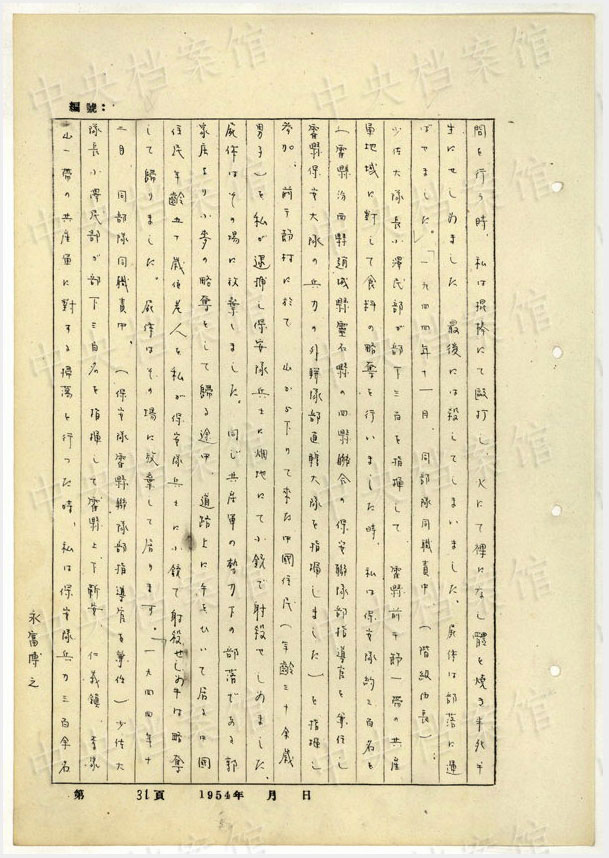 編號：
問を行う時、私は棍棒にて毆打し、火にて裸になし體を焼き半死半
生にせしめました 最後には殺してしまいました。屍体は部落に運
ばせました。「一九四四年十一月 同部隊同職責中（階級伍長）
少佐大隊長小澤民部が部下三百を指揮して 霍縣前干節一帶の共産
軍地域に対して食料の略奪を行いました時、私は保安隊約二百名を
（霍縣汾西縣趙城縣靈石縣の四縣聯合の保安聯隊部指導官を兼任し
霍縣保安大隊の兵力の外聯隊部直轄大隊を指揮しました）を指揮し
参加、前干節村に於て 山から下りて来た中國住民（年齡三十余歲
男子）を私が逮捕し保安隊兵士に畑地にて小銃で射殺せしめました。
屍体はその場に放棄しました。同じ共産軍の勢力下の部落である郭
家庄より小麥の略奪をして歸る途中 道路上に牛をひいて居る中國
住民年齡五十歲位老人を私が保安隊兵士に小銃で射殺せしめ牛は略奪
して歸りました。屍体はその場に放棄して居ります。「一九四四年十
二月 同部隊同職責中。（保安隊霍縣聯隊部指導官を兼任）少佐大
隊長小澤民部が部下三百名を指揮して霍縣上、下靳安、仁義鎮、李泉
山一帶の共産軍に對する掃蕩を行った時、私は保安隊兵力三百余名
永富博之
第 31頁 1954年 月 日
中央档案馆